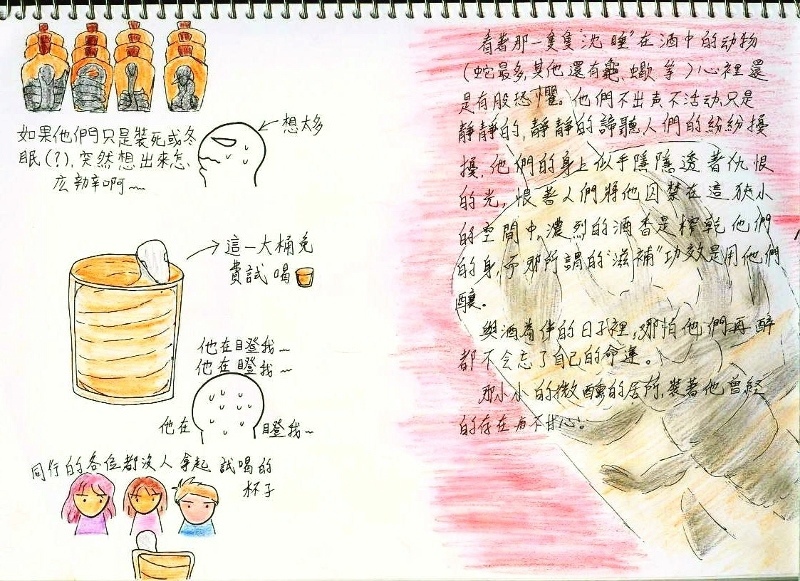 如果他們只是裝死或冬
眠(?),突然想出來怎
庅辦啊~
想太多
這一大桶免
費試喝
他在瞪我~
他在瞪我~
他在 瞪我~
同行的各位都沒人拿起試喝的
杯子
看著那一隻隻"沈睡"在酒中的动物
(蛇最多,其他還有龜、蠍 等)心裡還
是有股恐懼。他們不出声不活动,只是
靜靜的,靜靜的諦聽人們的紛紛擾
擾,他們的身上似乎隱隱透著仇恨
的光,恨著人們將他囚禁在這狹小
的空間中,濃烈的酒香是榨乾他們
的身,而那所謂的"滋補"功效是用他們
釀。
與酒為伴的日子裡,哪怕他們再醉
都不会忘了自己的命運。
那小小的微醺的居所,裝著他曾經
的存在与不甘心。